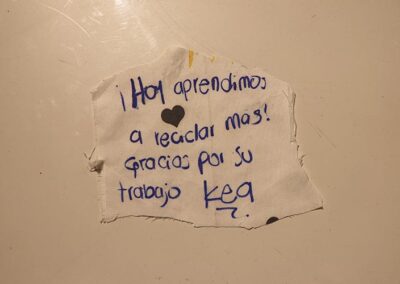 ¡Hoy aprendimos
a reciclar mas!
Gracias por su
trabajo Kea